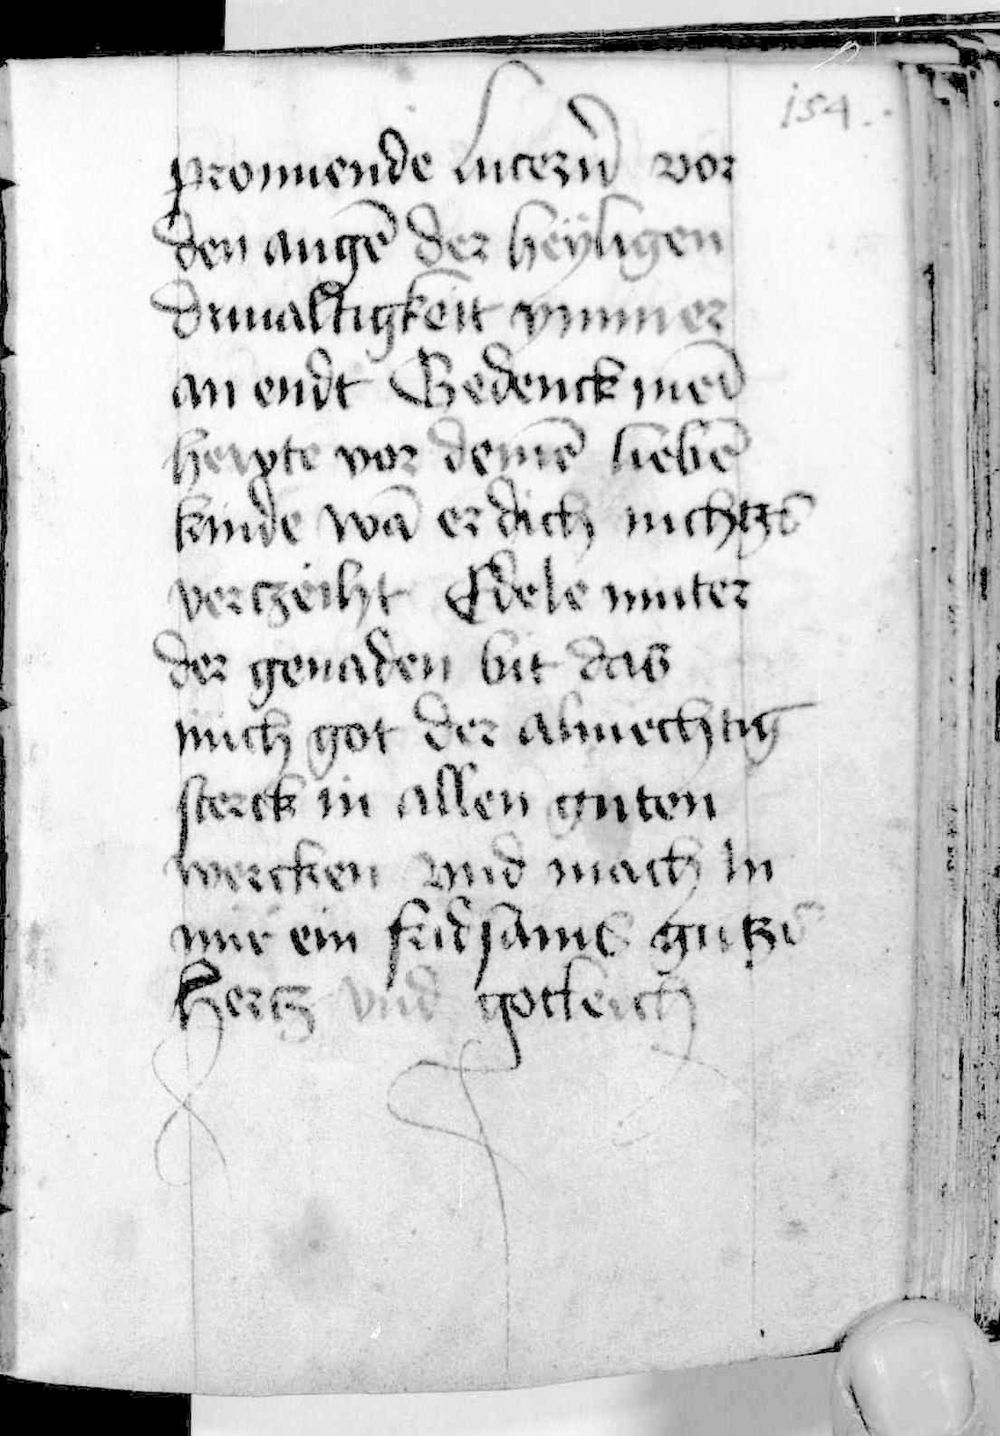 154
pronnende lucern̄ vor
den augē der heÿligen
driualtigkeit ymmer
an endt Gedenck mei̅
hewte vor deinē liebē
kinde wā er dich nichtzs̄
vertzeiht Edele muter
der genaden bit das
mich got der almechtig
sterck in allen guten
wercken vnd mach in
mir ein fridsams gutzs̄
Hertz vnd gotleich